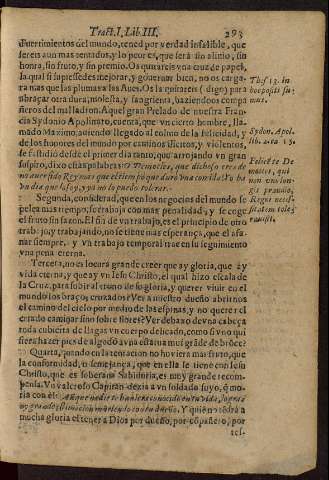 Tract. I. Lib. III. 293
diuertimientos del mundo, tened por verdad infalible, que
sereis aun mas tentados, y lo peor es, que serà sin aliuio, sin
honra, sin fruto, y sin premio. Os quitareis vna cruz de papel,
la qual si supiessedes mejorar, y gouernar bien, no os carga
ra mas que las plumas a las Aues. Os la quitareis (digo) para
abraçar otra dura, molesta, y sangrienta, haziendoos compa
ñeros del mal ladron. Aquel gran Prelado de nuestra Fran-
cia Sydonio Apolinario, cuenta, que vn cierto hombre, lla-
mado Maximo, auiendo llegado al colmo de la felicidad, y
de los honores del mundo por caminos ilicitos, y violentos,
se fastidiò desde el primer dia tanto, que arrojando vn gran
suspiro, dixo estas palabras: O Democles, que dichoso eres de
no auer sido Rey mas que el tiempo que durò vna comida! Yo ha
vn dia que lo soy, y ya no lo puedo tolerar.
Segunda, considerad, que en los negocios del mundo se
pelea mas tiempo, se trabaja con mas penalidad, y se coge
el fruto sin sazon. El fin de vn trabajo, es el principio de otro
trabajo; y trabajando, no se tiene mas esperança, que el afa-
nar siempre, y vn trabajo temporal trae en su seguimiento
vna pena eterna.
Tercera, no es locura grande creer que ay gloria, que ay
vida eterna, y que ay vn Iesu Christo, el qual hizo escala de
la Cruz, para subir al trono de su gloria, y querer viuir en el
mundo los braços cruzados? Ver a nuestro dueño abrirnos
el camino del cielo por medio de las espinas, y no querer el
criado caminar sino sobre flores? Ver debaxo de vna cabeça
toda cubierta de llagas vn cuerpo delicado, como si vno qui
siera hazer pies de algodõ a vna estatua muy grãde de brõce?
Quarta, quando en la tentacion no huviera mas fruto, que
la conformidad, ò semejança, que en ella se tiene con Iesu
Christo, que es soberana Sabiduria, es muy grande recom-
pensa. Vn valeroso Capitan dezia a vn soldado suyo, q̃ mo-
ria con èl:
mucha gloria el tener a Dios por dueño, por cõpañero, por
res-
Thes. 13. in
Sydon. Apol.
lib. 2. ep. 13.
Felicem te De
mocles, qui
non uno lon-
gius prandio,
Regni necessi
sitatem tole-
rauisti.